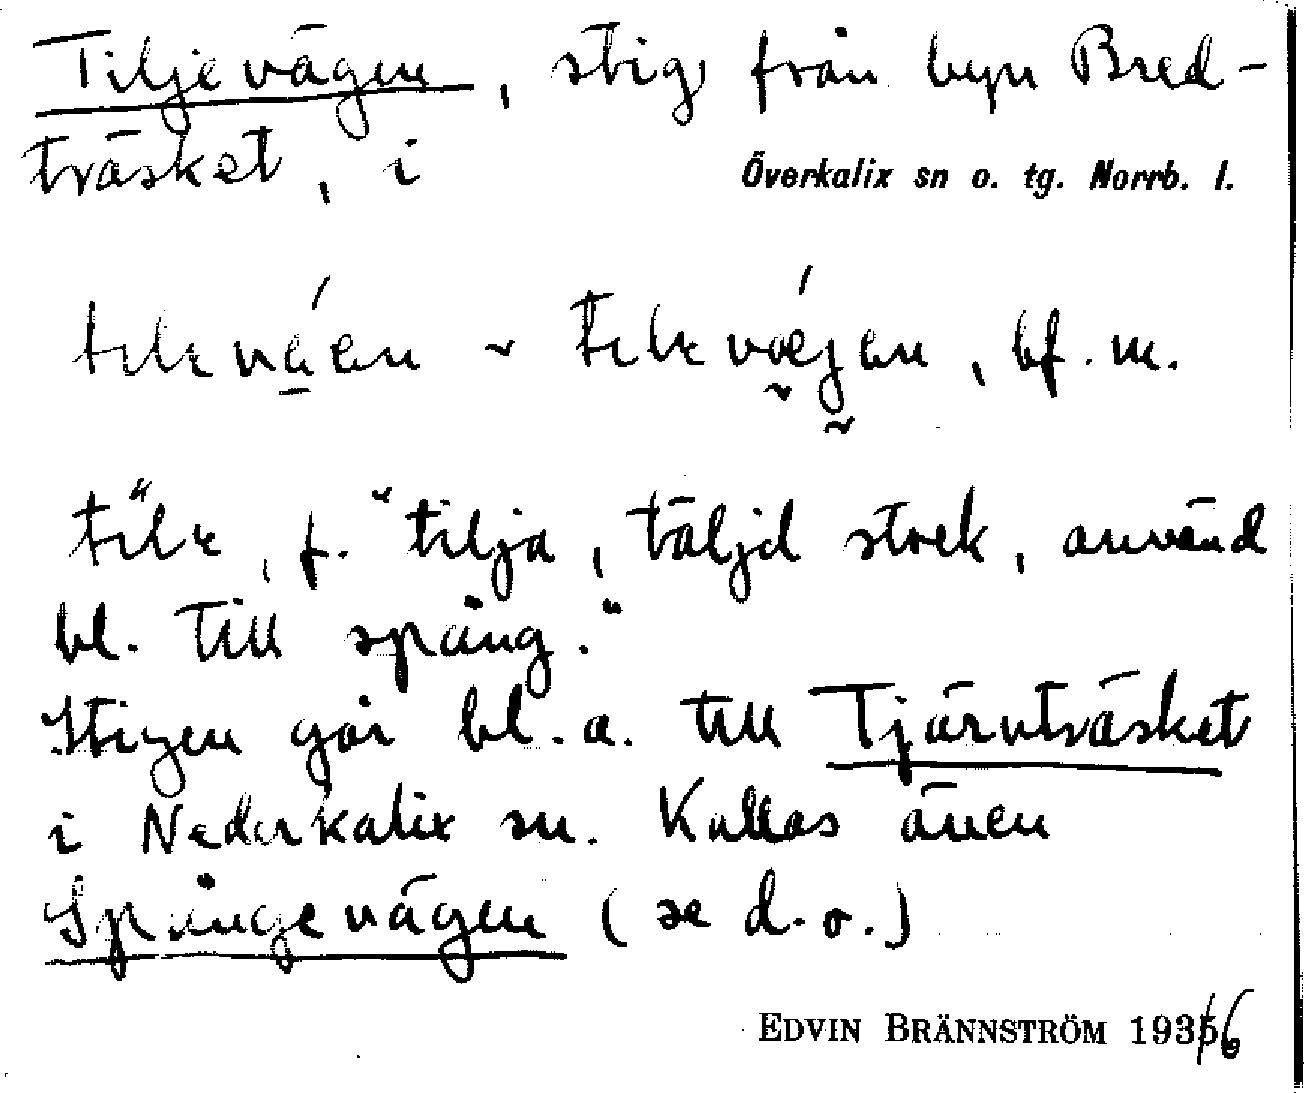 Tiljevägen, stig från byn Bred-
träsket, i Överkalix sn o. tg. Norrb. l.
, bf. m.
, f. "tilja, täljd stock, använd
bl. till spång."
Stigen går bl. a. till Tjärnträsket
i Nederkalix sn. Kallas även
Spångevägen (se d. o.)
EDVIN BRÄNNSTRÖM 1936